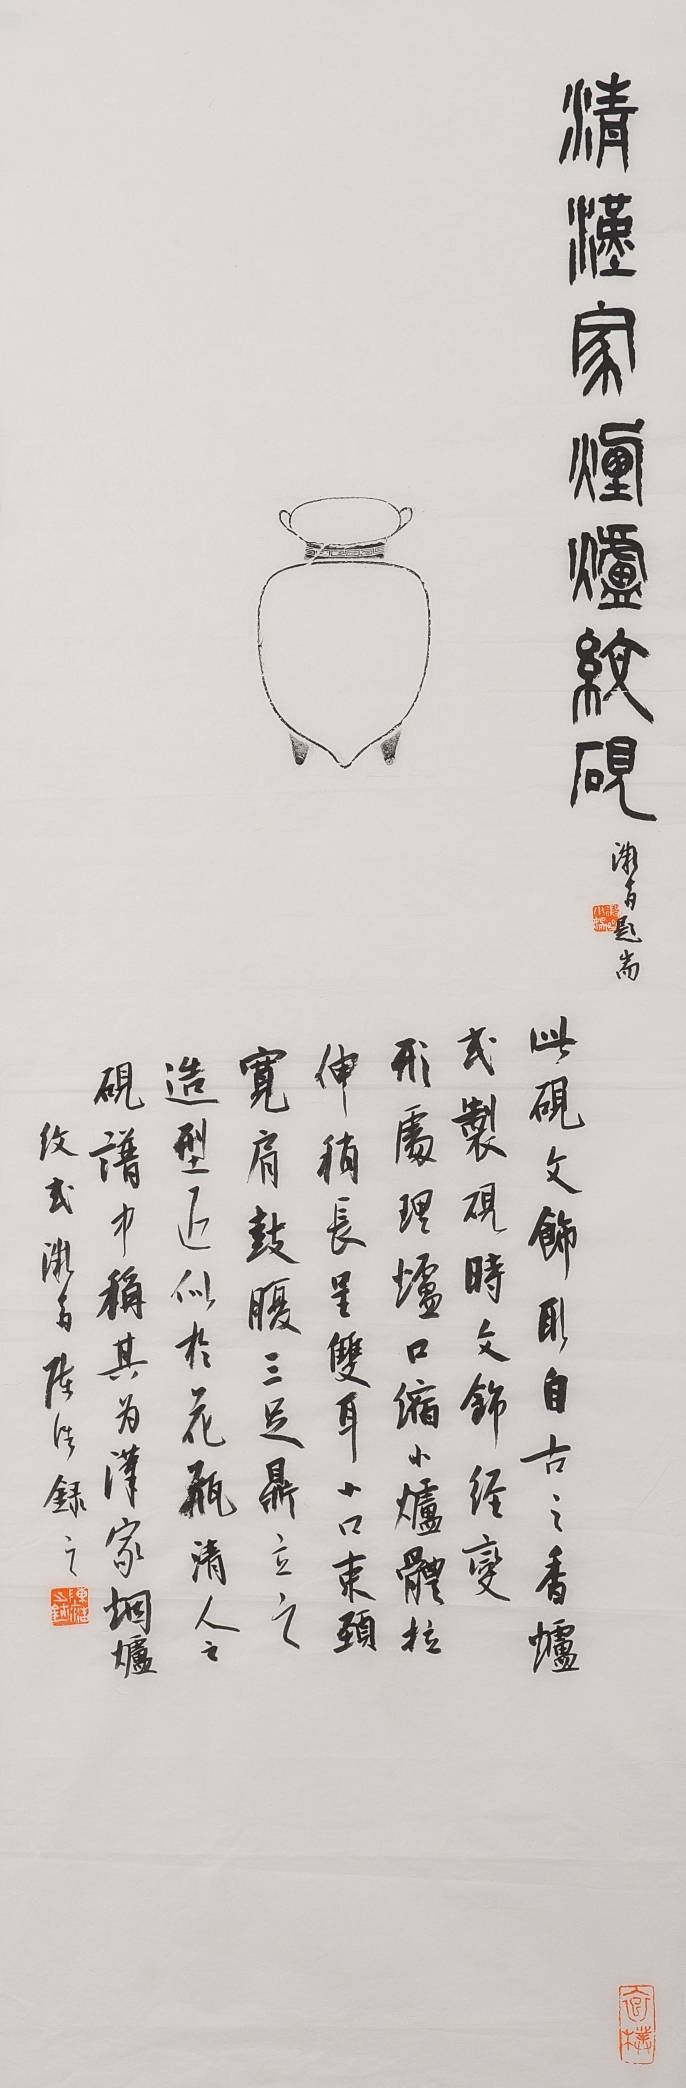 清漢家煙爐紋硯
漱石題耑
此硯文飾取自古之香爐
式製硯時文飾經變
形處理爐口縮小爐體拉
伸稍長呈雙耳小口束頸
寬肩鼓腹三足鼎立之
造型近似於花瓶清人之
硯譜中稱其为漢家烟爐
纹式漱石陳浩錄之